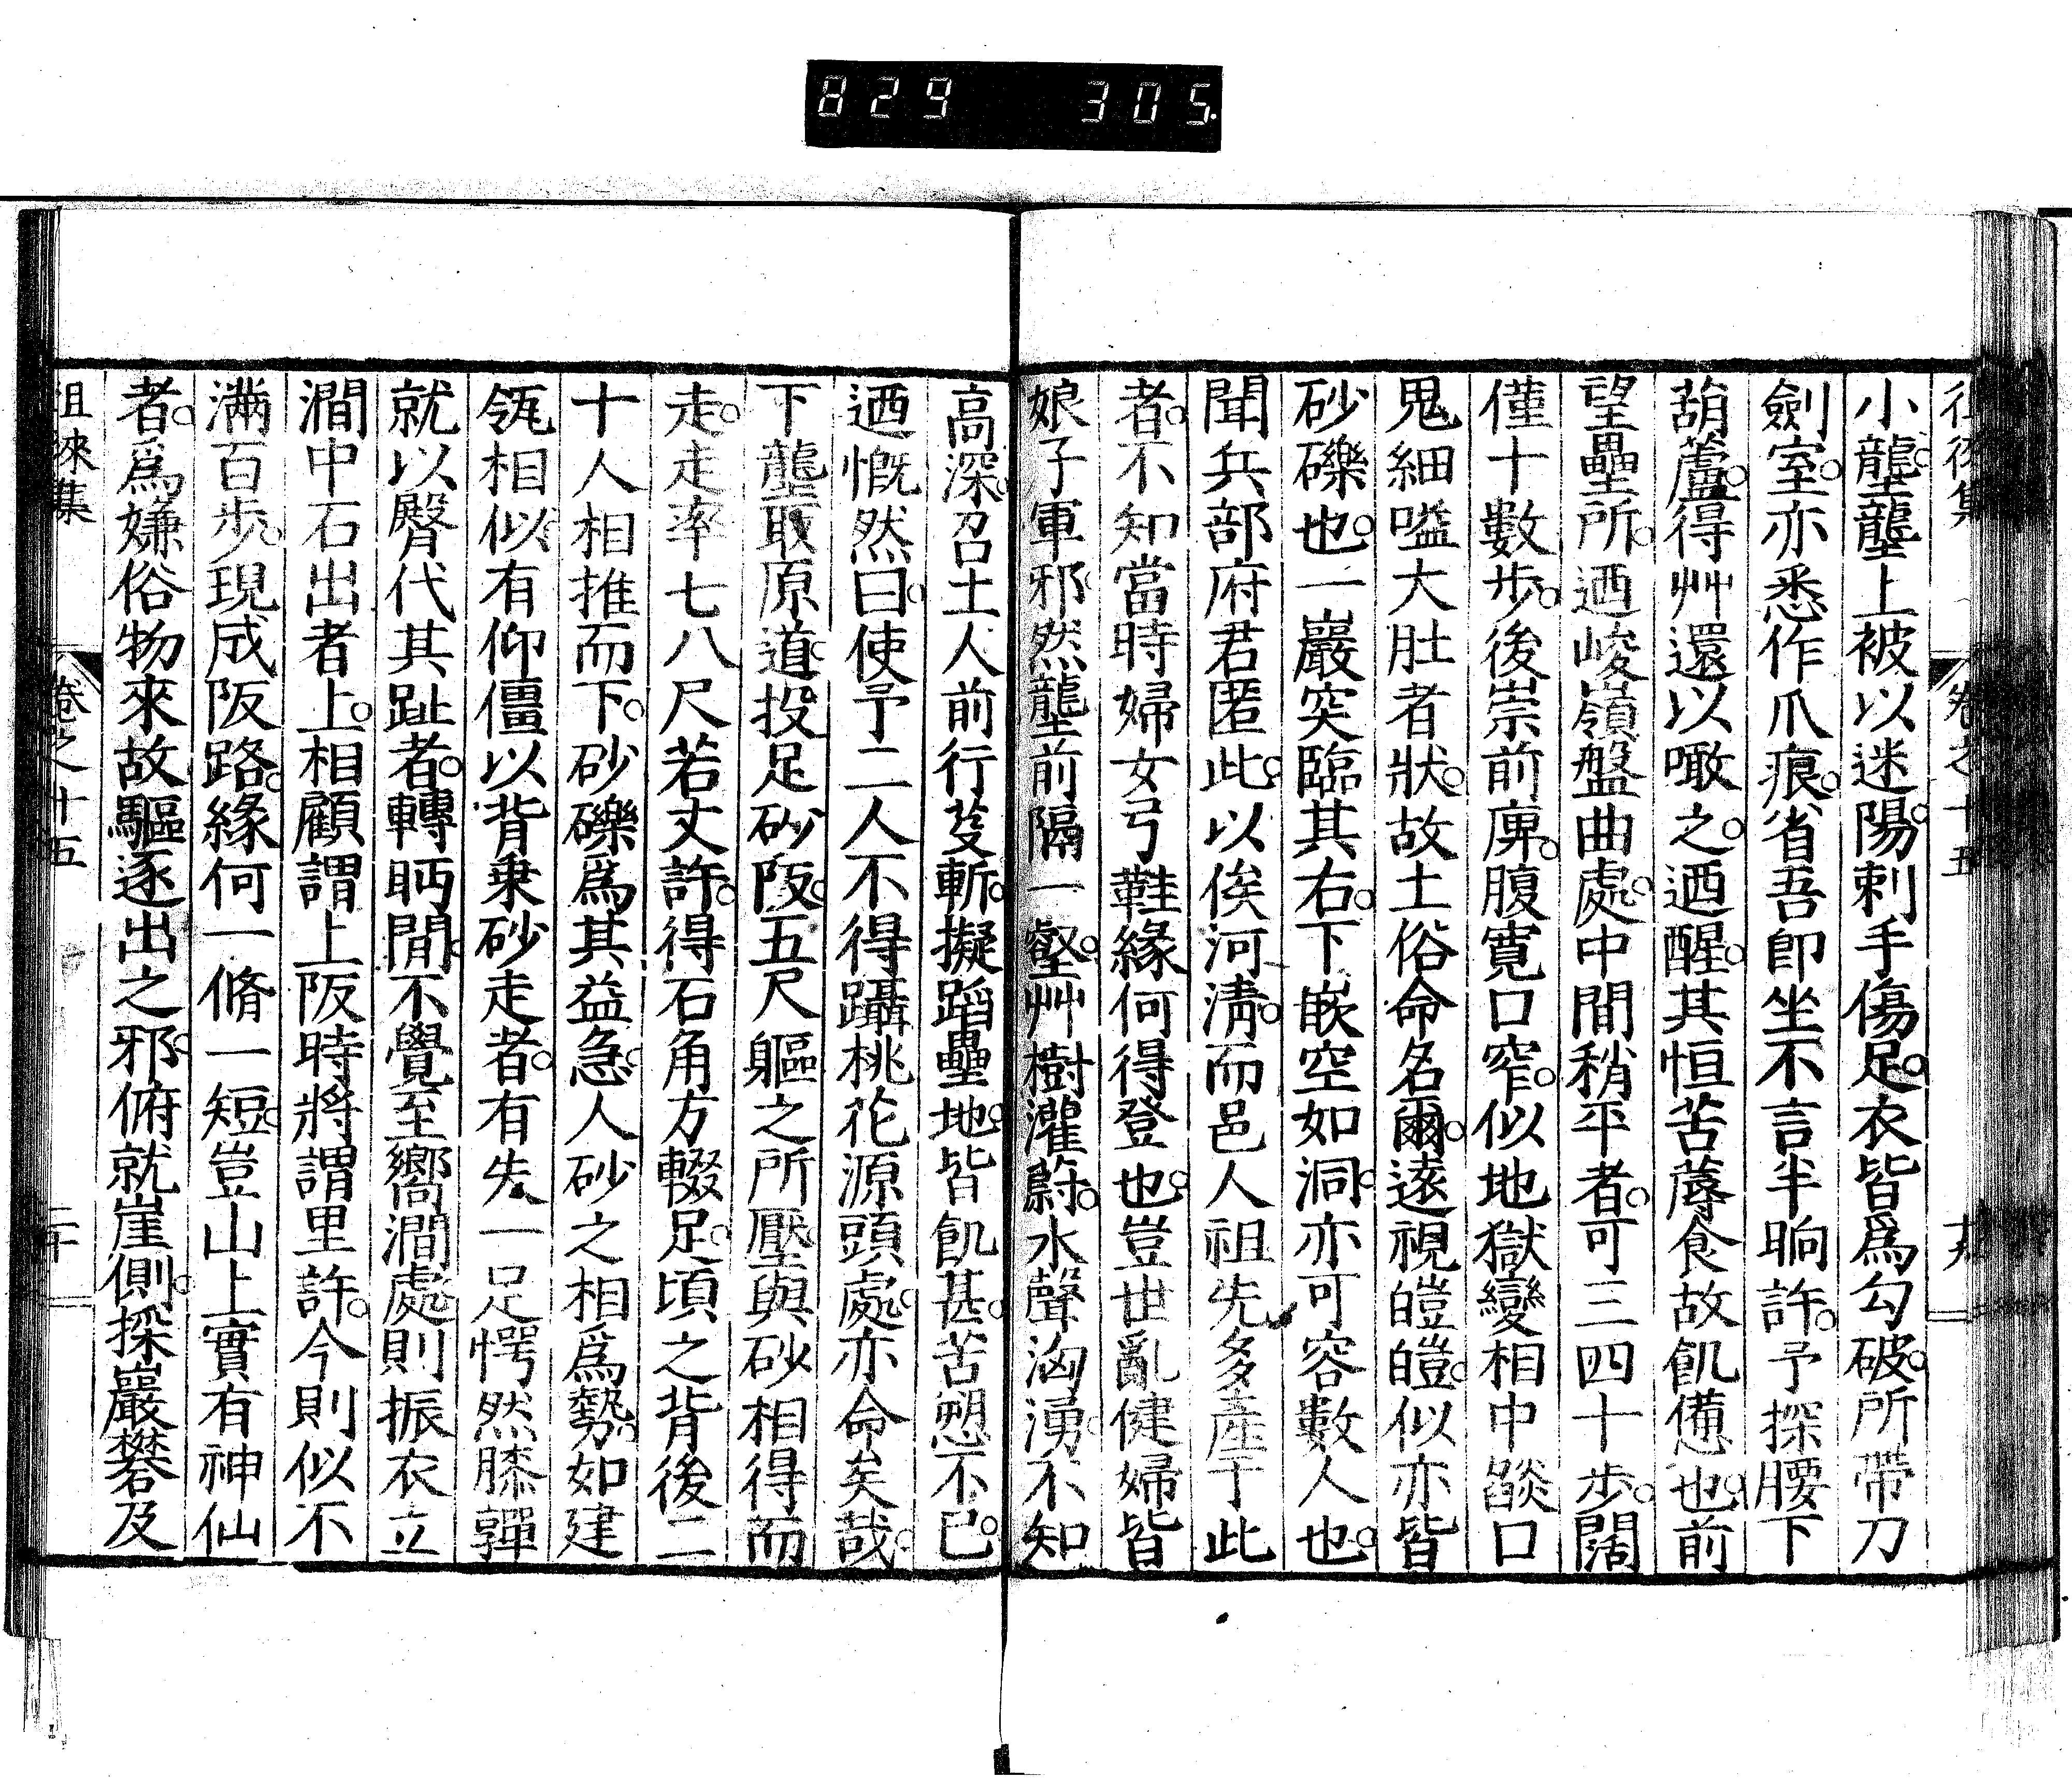 829 305
徂徠集 卷之十五
小壟壟上被以迷陽刺手傷足衣皆爲勾破所帶刀
劍室亦悉作爪痕省吾卽坐不言半晌許予探腰下
葫蘆得艸還以噉之迺醒其恒苦蓐食故飢憊也前
望壘所迺峻嶺盤曲處中間稍平者可三四十步闊
僅十數步後崇前庳腹寬口窄似地獄變相中燄口
鬼細嗌大肚者狀故土俗命名爾遠視皚皚似亦皆
砂礫也一巖突臨其右下嵌空如洞亦可容數人也
聞兵部府君匿此以俟河淸而邑人祖先多產于此
者不知當時婦女弓鞋緣何得登也豈世亂健婦皆
娘子軍邪然壟前隔一壑艸樹灌蔚水聲洶湧不知
高深召土人前行芟斬擬蹈壘地皆飢甚苦愬不已
迺慨然曰使予二人不得躡桃花源頭處亦命矣哉
下壟取原道投足砂阪五尺軀之所壓與砂相得而
走走率七八尺若丈許得石角方輟足頃之背後二
十人相推而下砂礫爲其益急人砂之相爲勢如建
瓴相似有仰僵以背乘砂走者有失一足愕然膝嚲
就以臀代其趾者轉眄間不覺至嚮澗處則振衣立
澗中石出者上相顧謂上阪時將謂里許今則似不
滿百步現成阪路緣何一脩一短豈山上實有神仙
者爲嫌俗物來故驅逐出之邪俯就崖側探巖礬及
徂徠集 卷之十五 二十